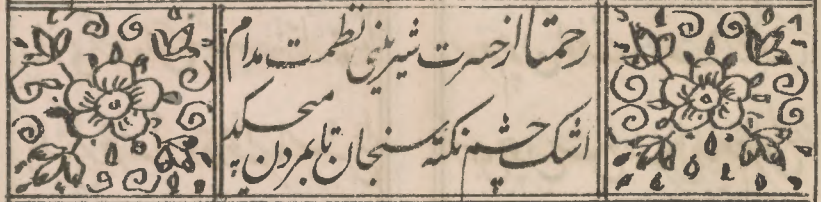 رحمتا از حسرت شیرینی نظمت مدام
اشک چشم نکته سنجان تا بمردن میچکید